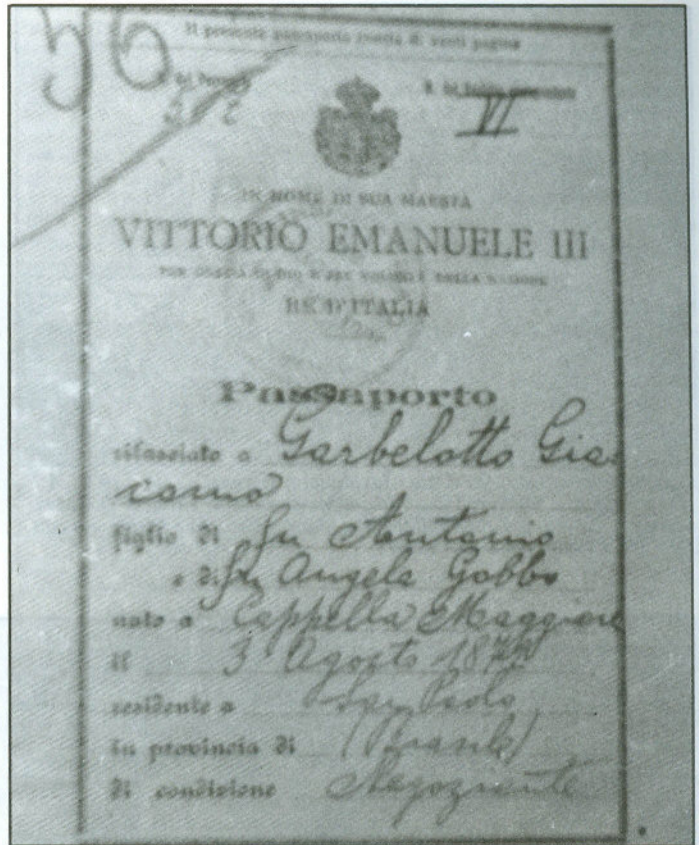 56
Il presente passaporto consta di venti pagine
VI
IN NOME DI SUA MAESTÀ
VITTORIO EMANUELE III
PER GRAZIA DI DIO E PER VOLONTÀ DELLA NAZIONE
RE D'ITALIA
Passaporto
rilasciato a Garbelotto Gia-
como
figlio di fu Antonio
e di fu Angela Gobbo
nato a Cappella Maggiore
il 3 Agosto
residente a San Paolo
in provincia di (Brasile)
di condizione Negoziante